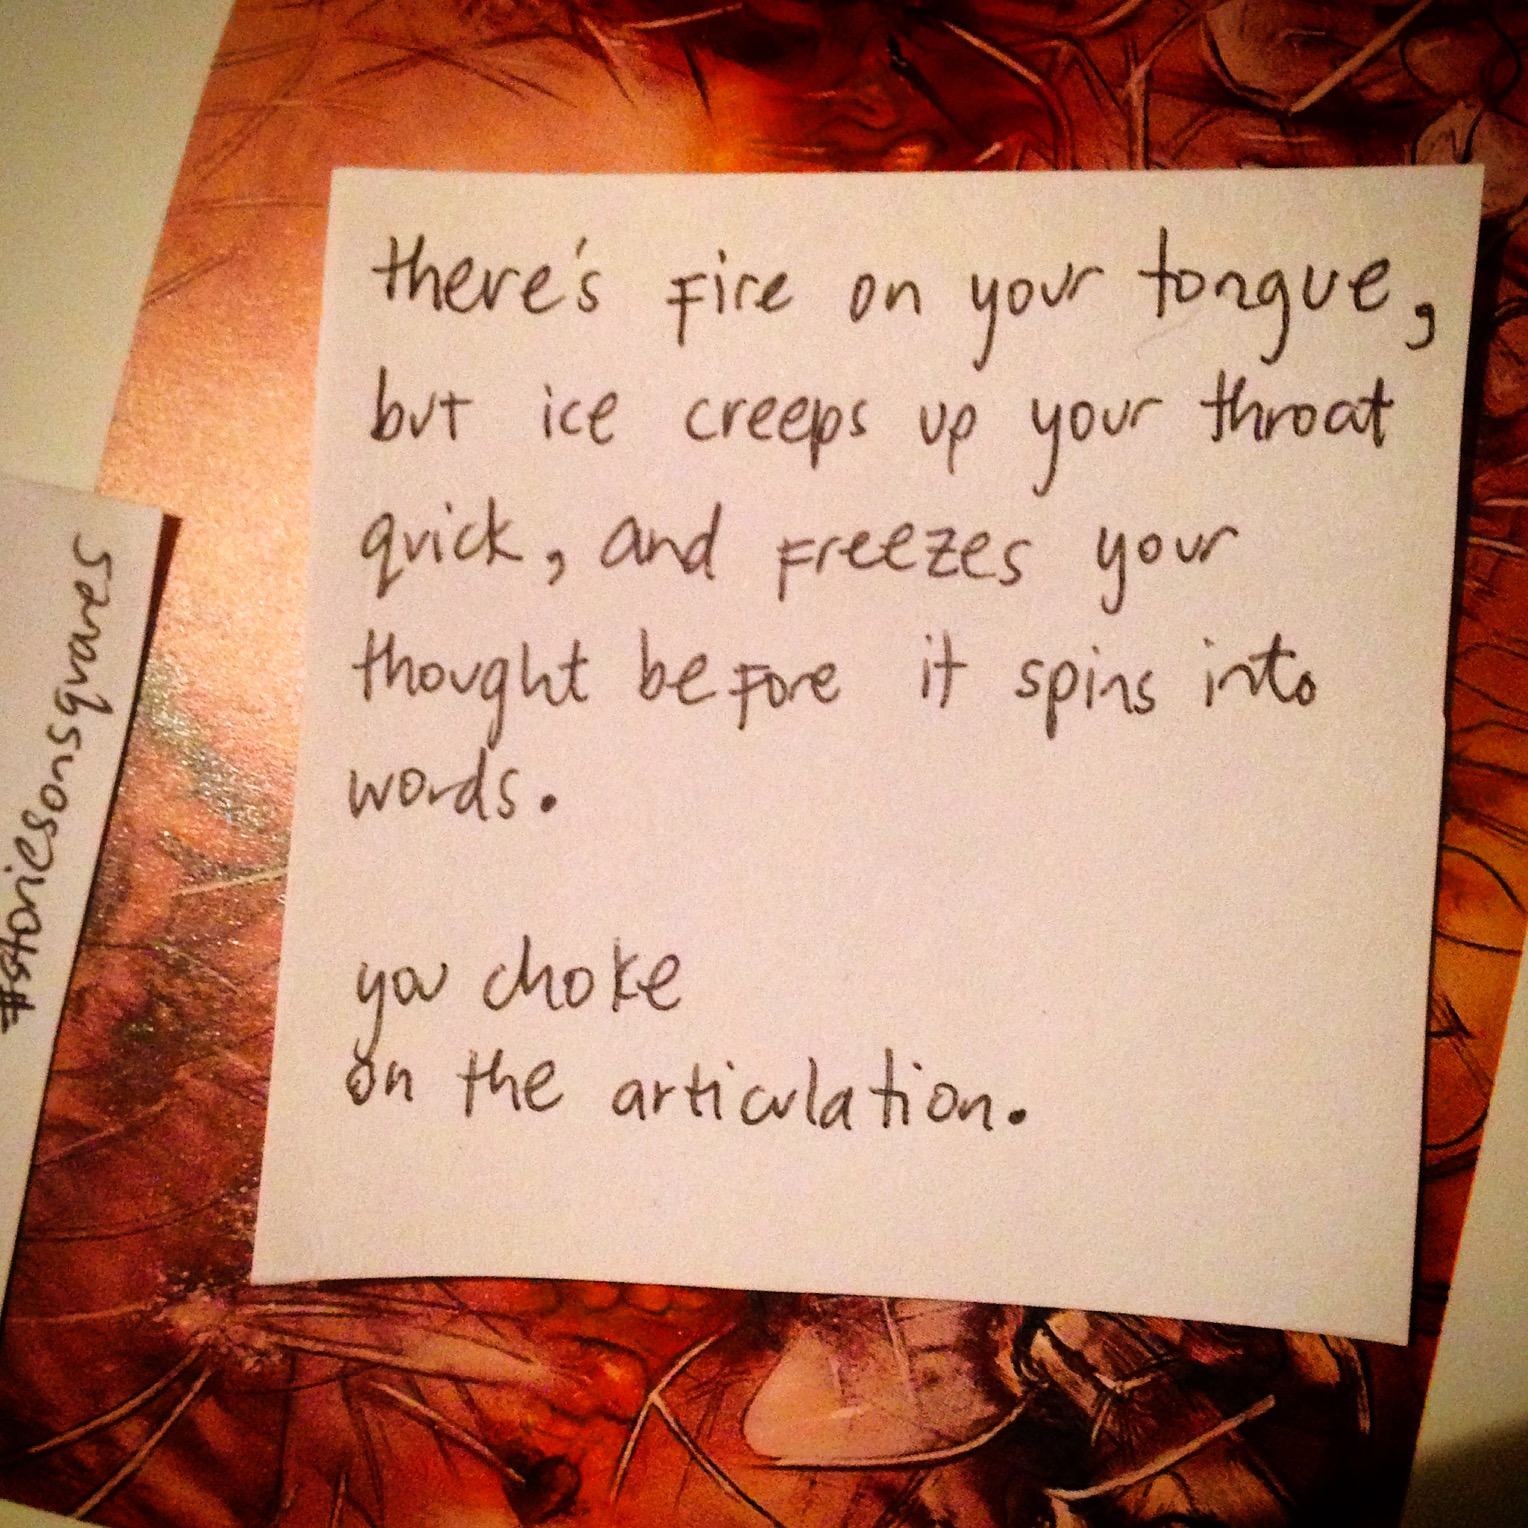 there's fire on your tongue,
but ice creeps up your throat
quick, and freezes your
thought before it spins into
words.
you choke
on the articulation.
#storiesonsquares